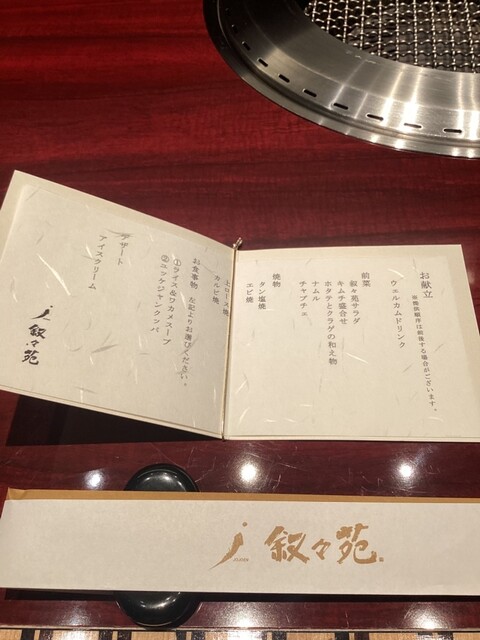 お献立
ウェルカムドリンク
前菜
叙々苑サラダ
キムチ盛合せ
ホタテとクラゲの和え物
ナムル
チャプチェ
焼物
タン塩焼
エビ焼
上ロース焼
カルビ焼
お食事物 左記よりお選びください。
①ライス&ワカメスープ
②ユッケジャンクッパ
デザート
アイスクリーム
叙々苑
叙々苑